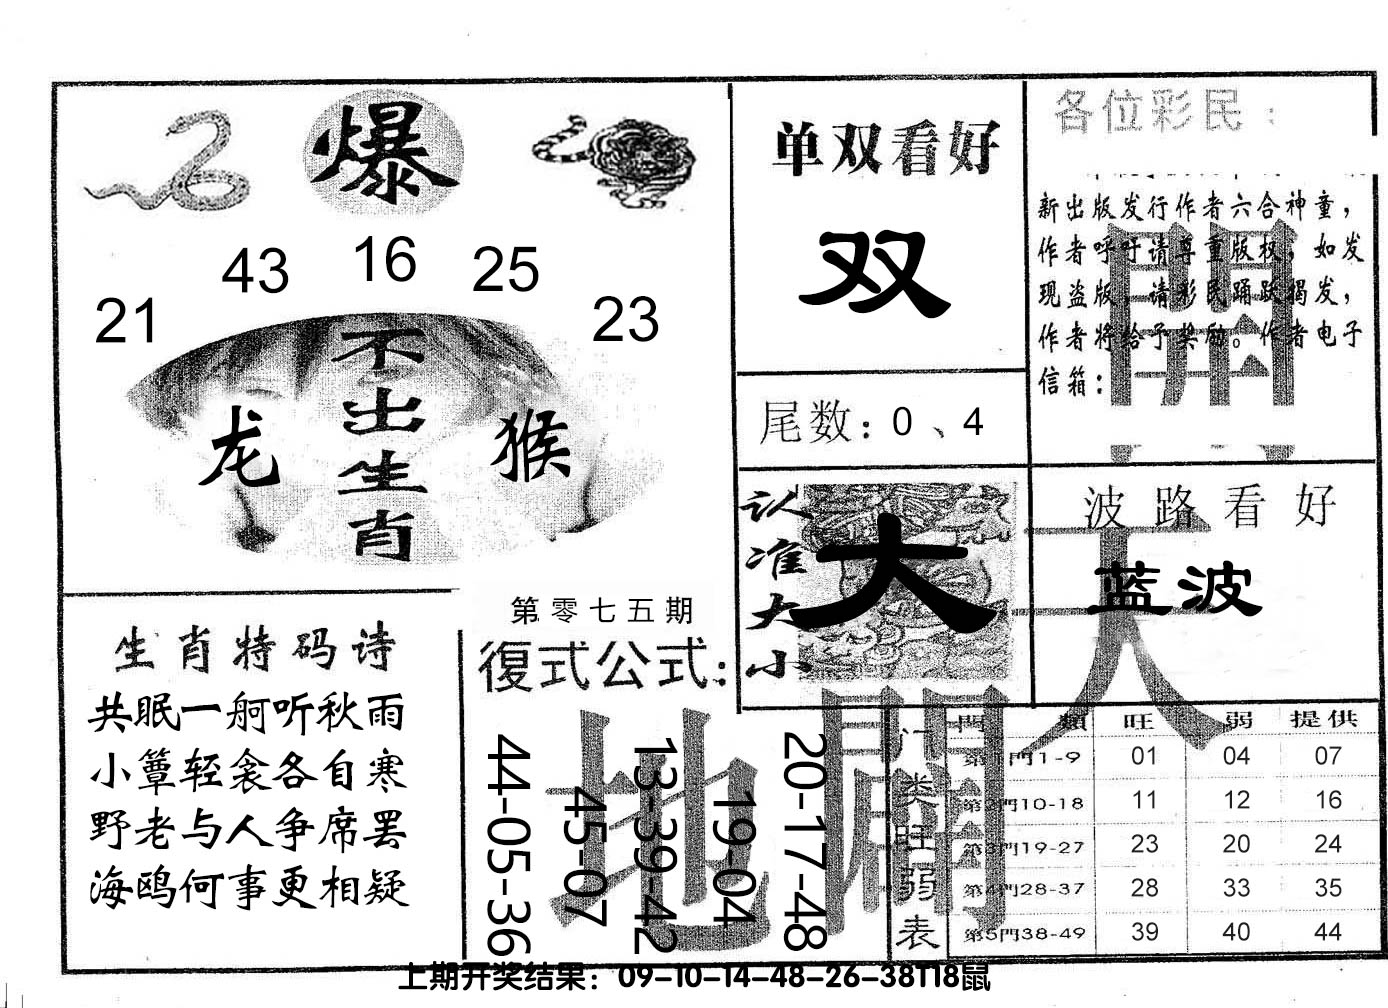 爆
43 16 25
21 23
不出生肖
龙 猴
单双看好
双
尾数：0、4
各位彩民：
新出版发行作者六合神童，
作者呼吁请尊重版权，如发
现盗版，请彩民踊跃揭发，
作者将给予奖励。作者电子
信箱：
认准大小
大
波路看好
蓝波
天
地
開
生肖特码诗
共眠一舸听秋雨
小簟轻衾各自寒
野老与人争席罢
海鸥何事更相疑
第零七五期
復式公式：
44-05-36
45-07
13-39-42
19-04
20-17-48
门类旺弱表
門 類 旺 弱 提供
第1門1-9 01 04 07
第2門10-18 11 12 16
第3門19-27 23 20 24
第4門28-37 28 33 35
第5門38-49 39 40 44
上期开奖结果：09-10-14-48-26-38T18鼠